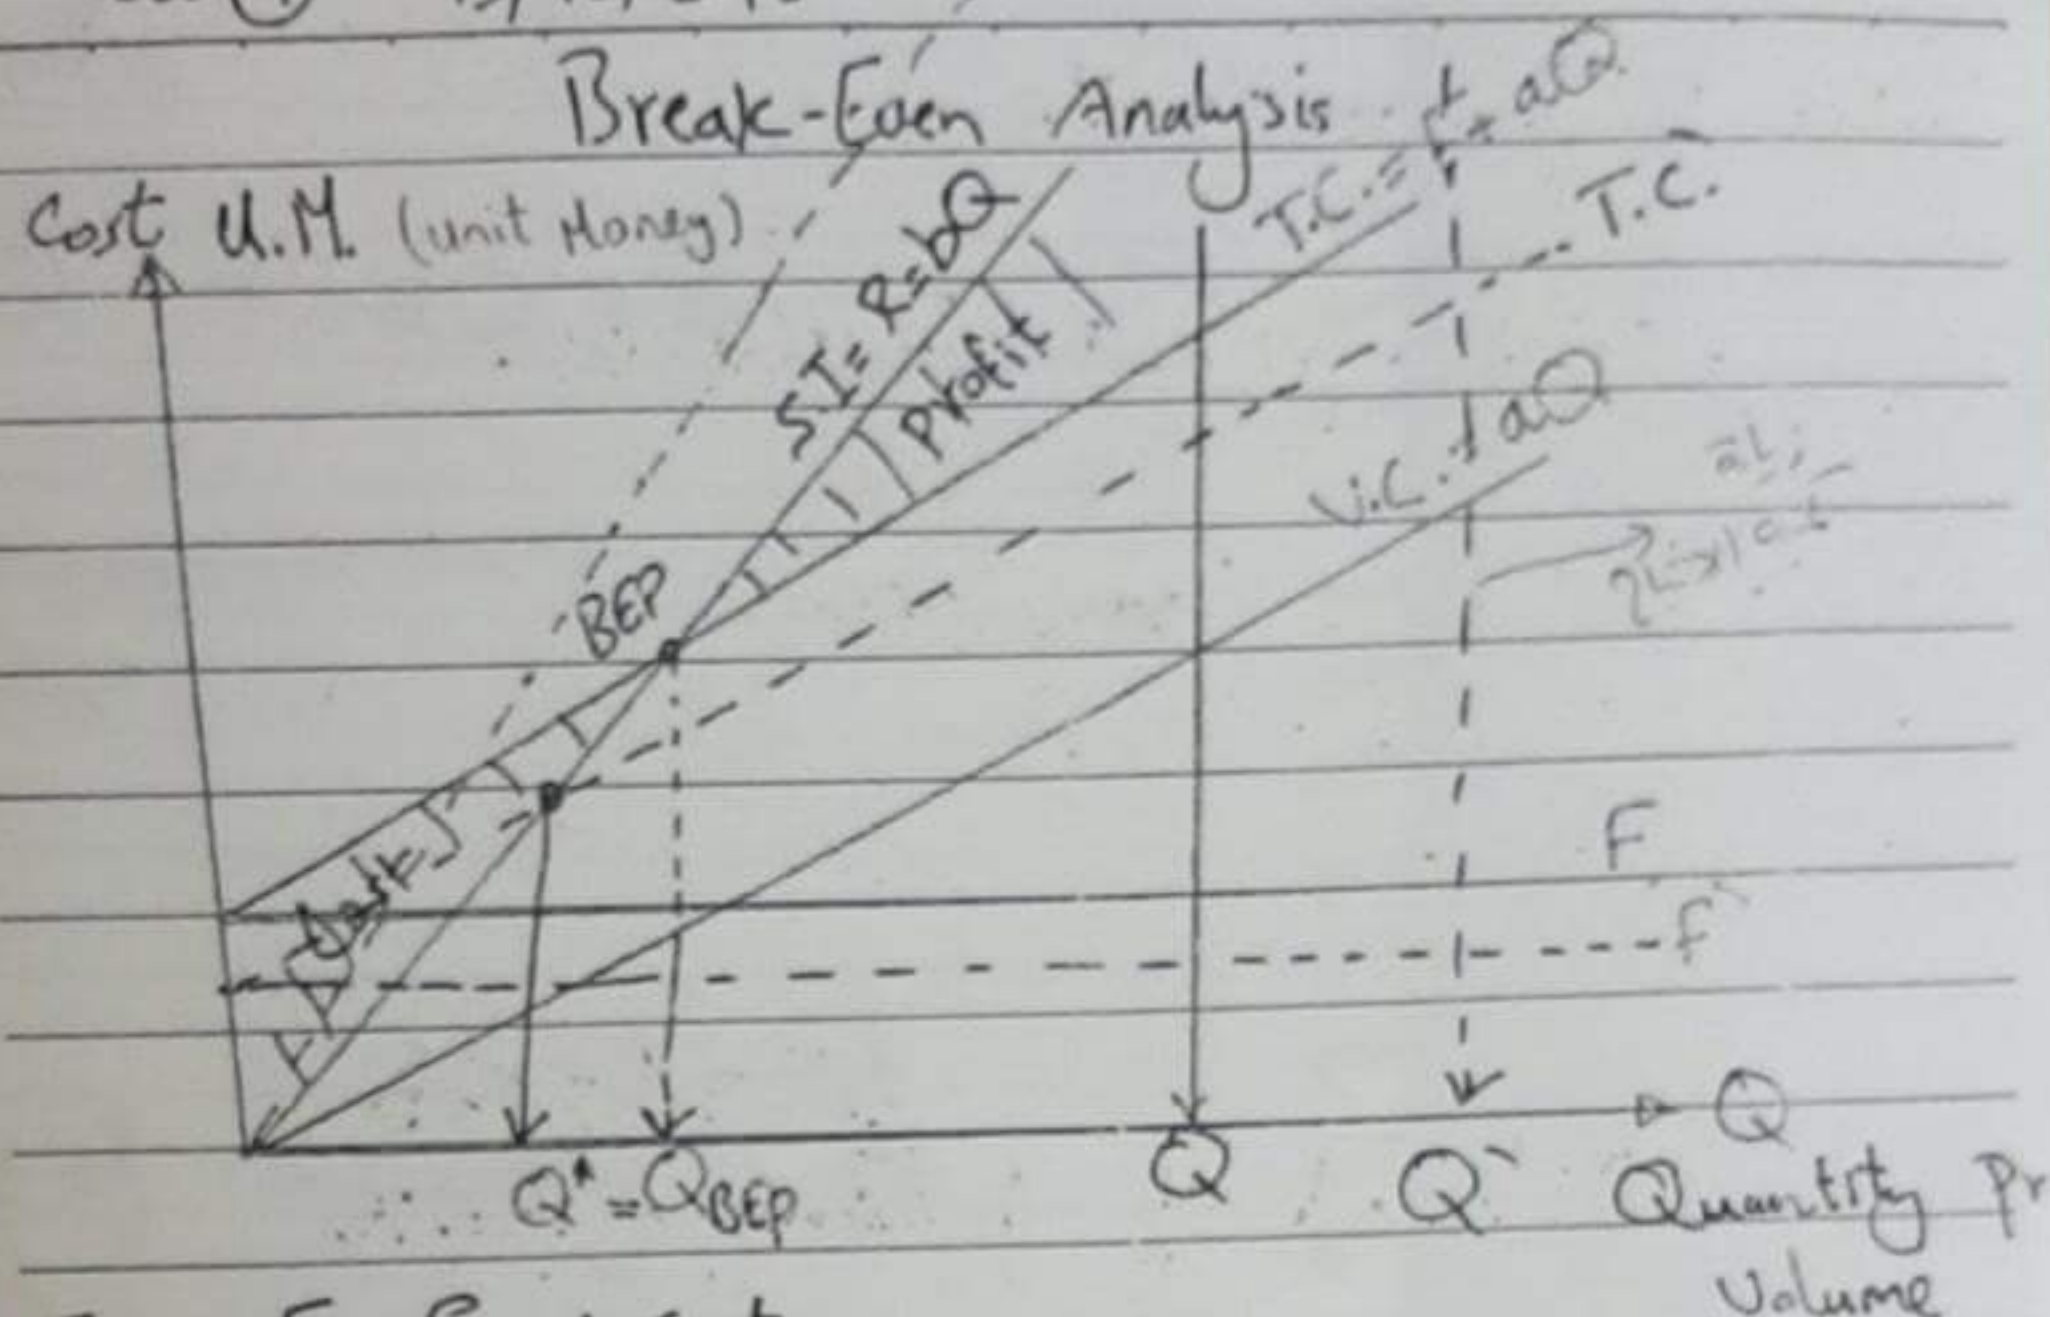 Break-Even Analysis
Cost U.M. (unit Money)
S.I = R = bQ
T.C. = F + aQ
T.C.
Profit
V.C. = aQ
BEP
F
F`
Q* = QBEP
Q
Q`
Q
Quantity Pr
Volume